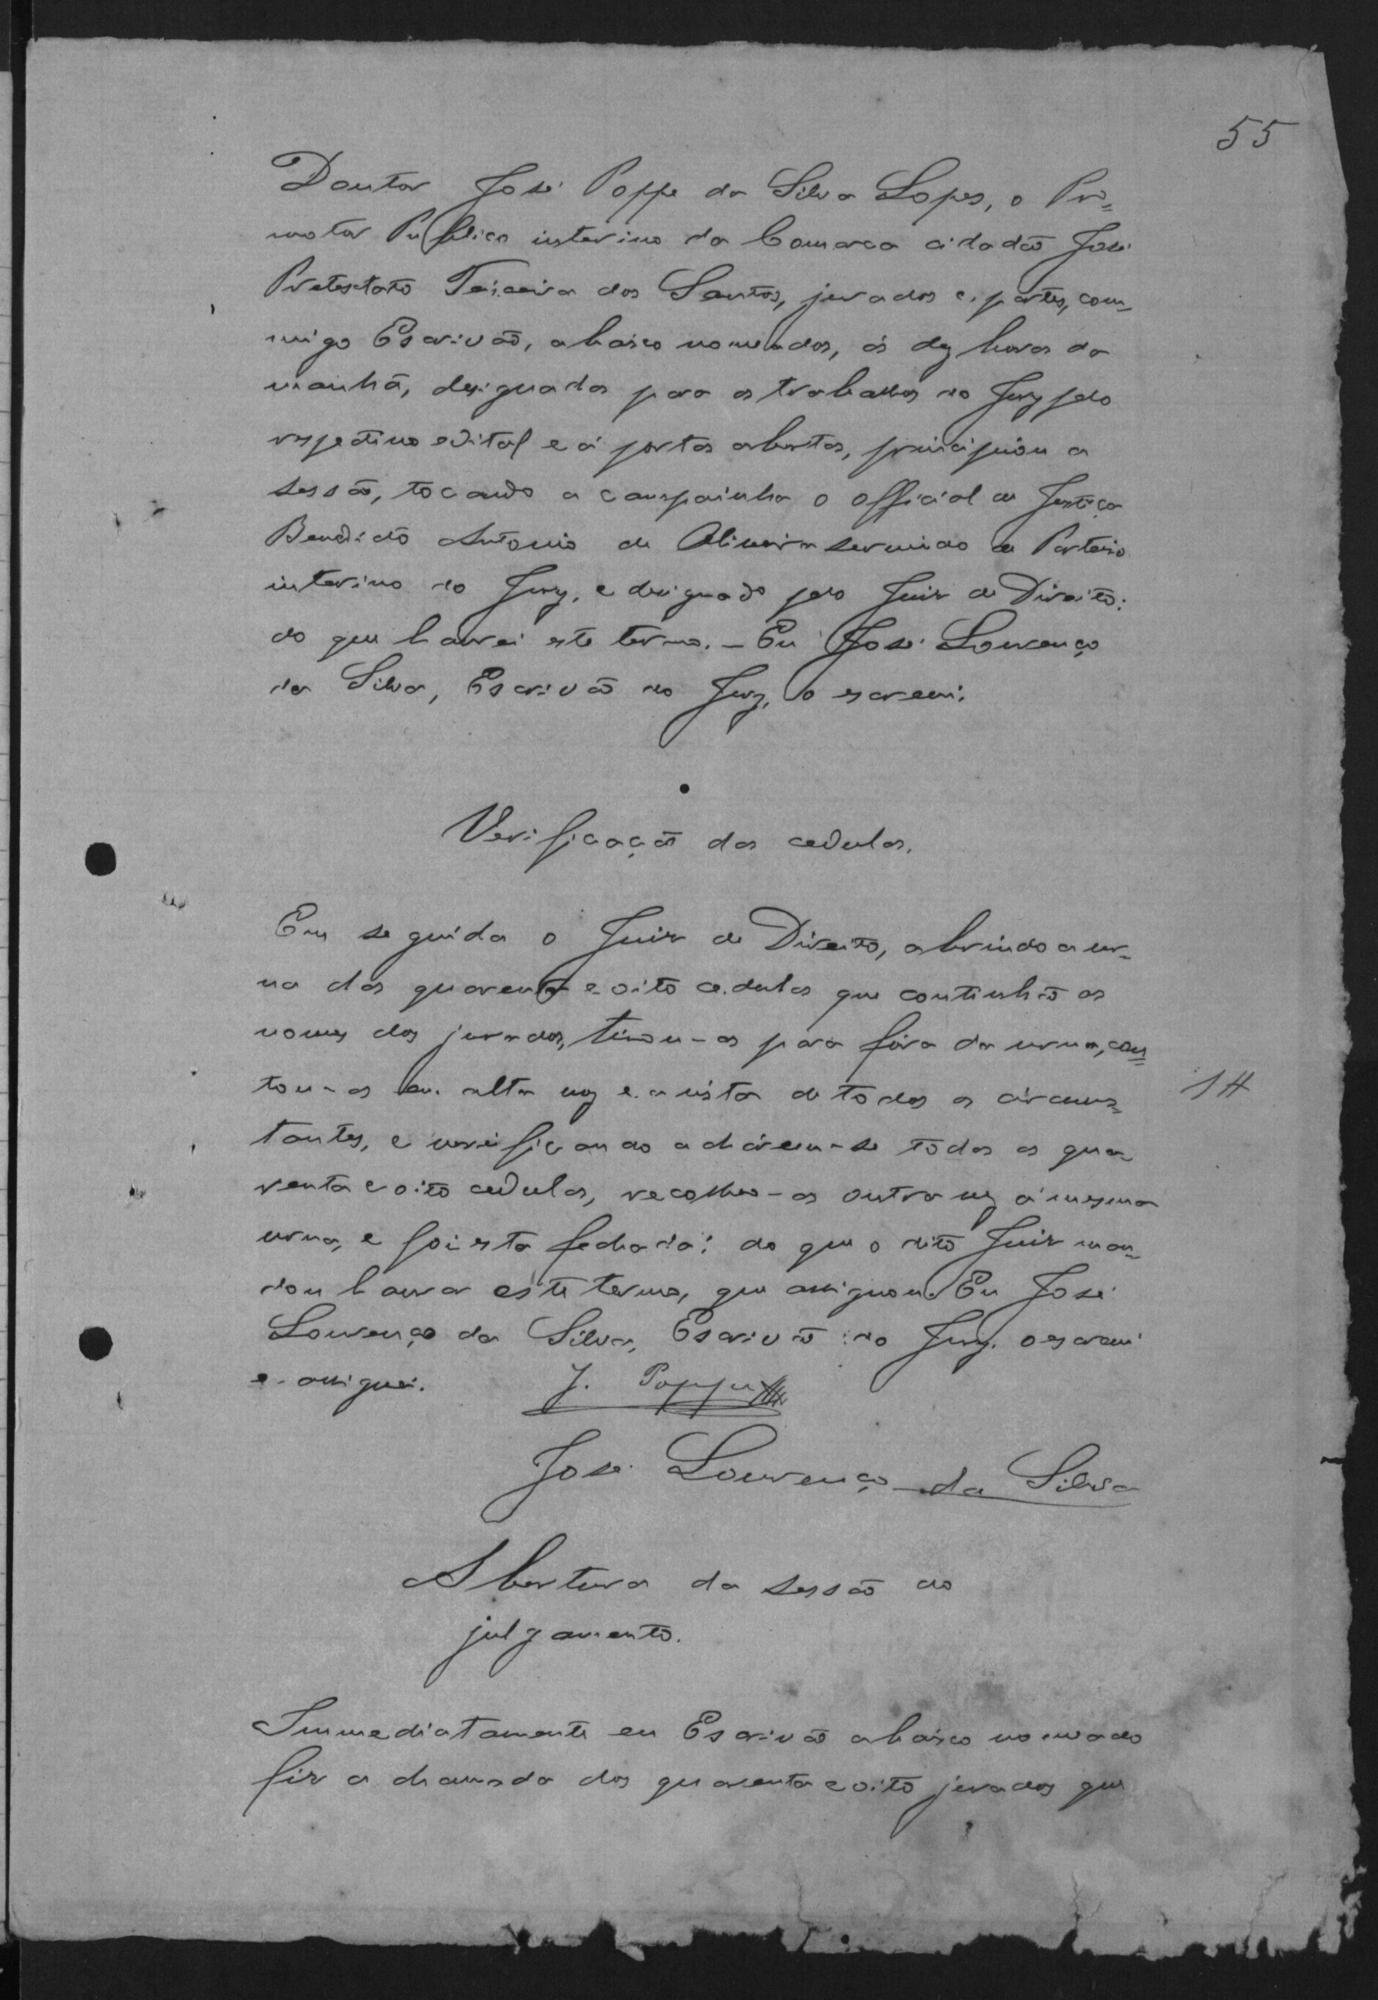 55
Doutor José Poppe da Silva Lopes, o Pro=
motor Publico interino da Comarca cidadão José
Pretextato Teixeira dos Santos, jurados e partes, com-
migo Escrivão, abaixo nomeados, ás dez horas da
manhã, designada para os trabalhos do Jury pelo
respectivo edital e á portas abertas, principiou a
sessão, tocando a campainha o official de Justiça
Benedicto Antonio de Oliveira servindo de Porteiro
interino do Jury, e designado pelo Juiz de Direito:
do que lavrei este termo. – Eu José Lourenço
da Silva, Escrivão do Jury, o escrevi.
Verificação das cedulas.
Em seguida o Juiz de Direito, abrindo a ur-
na das quarenta e oito cedulas que continhão os
nomes dos jurados, tirou-as para fóra da urna, con=
tou-as em alta voz e a vista de todos os circuns=
tantes, e verificando acharem-se todas as qua-
renta e oito cedulas, recolheo-as outra vez á mesma
urna, e foi esta fechada: do que o dito Juiz man-
dou lavrar este termo, que assignou. Eu José
Lourenço da Silva, Escrivão do Jury. o escrevi
e assignei. J. Poppe
José Lourenço da Silva
14
Abertura da sessão do
julgamento.
Immediatamente eu Escrivão abaixo nomeado
fiz a chamada dos quarenta e oito jurados que